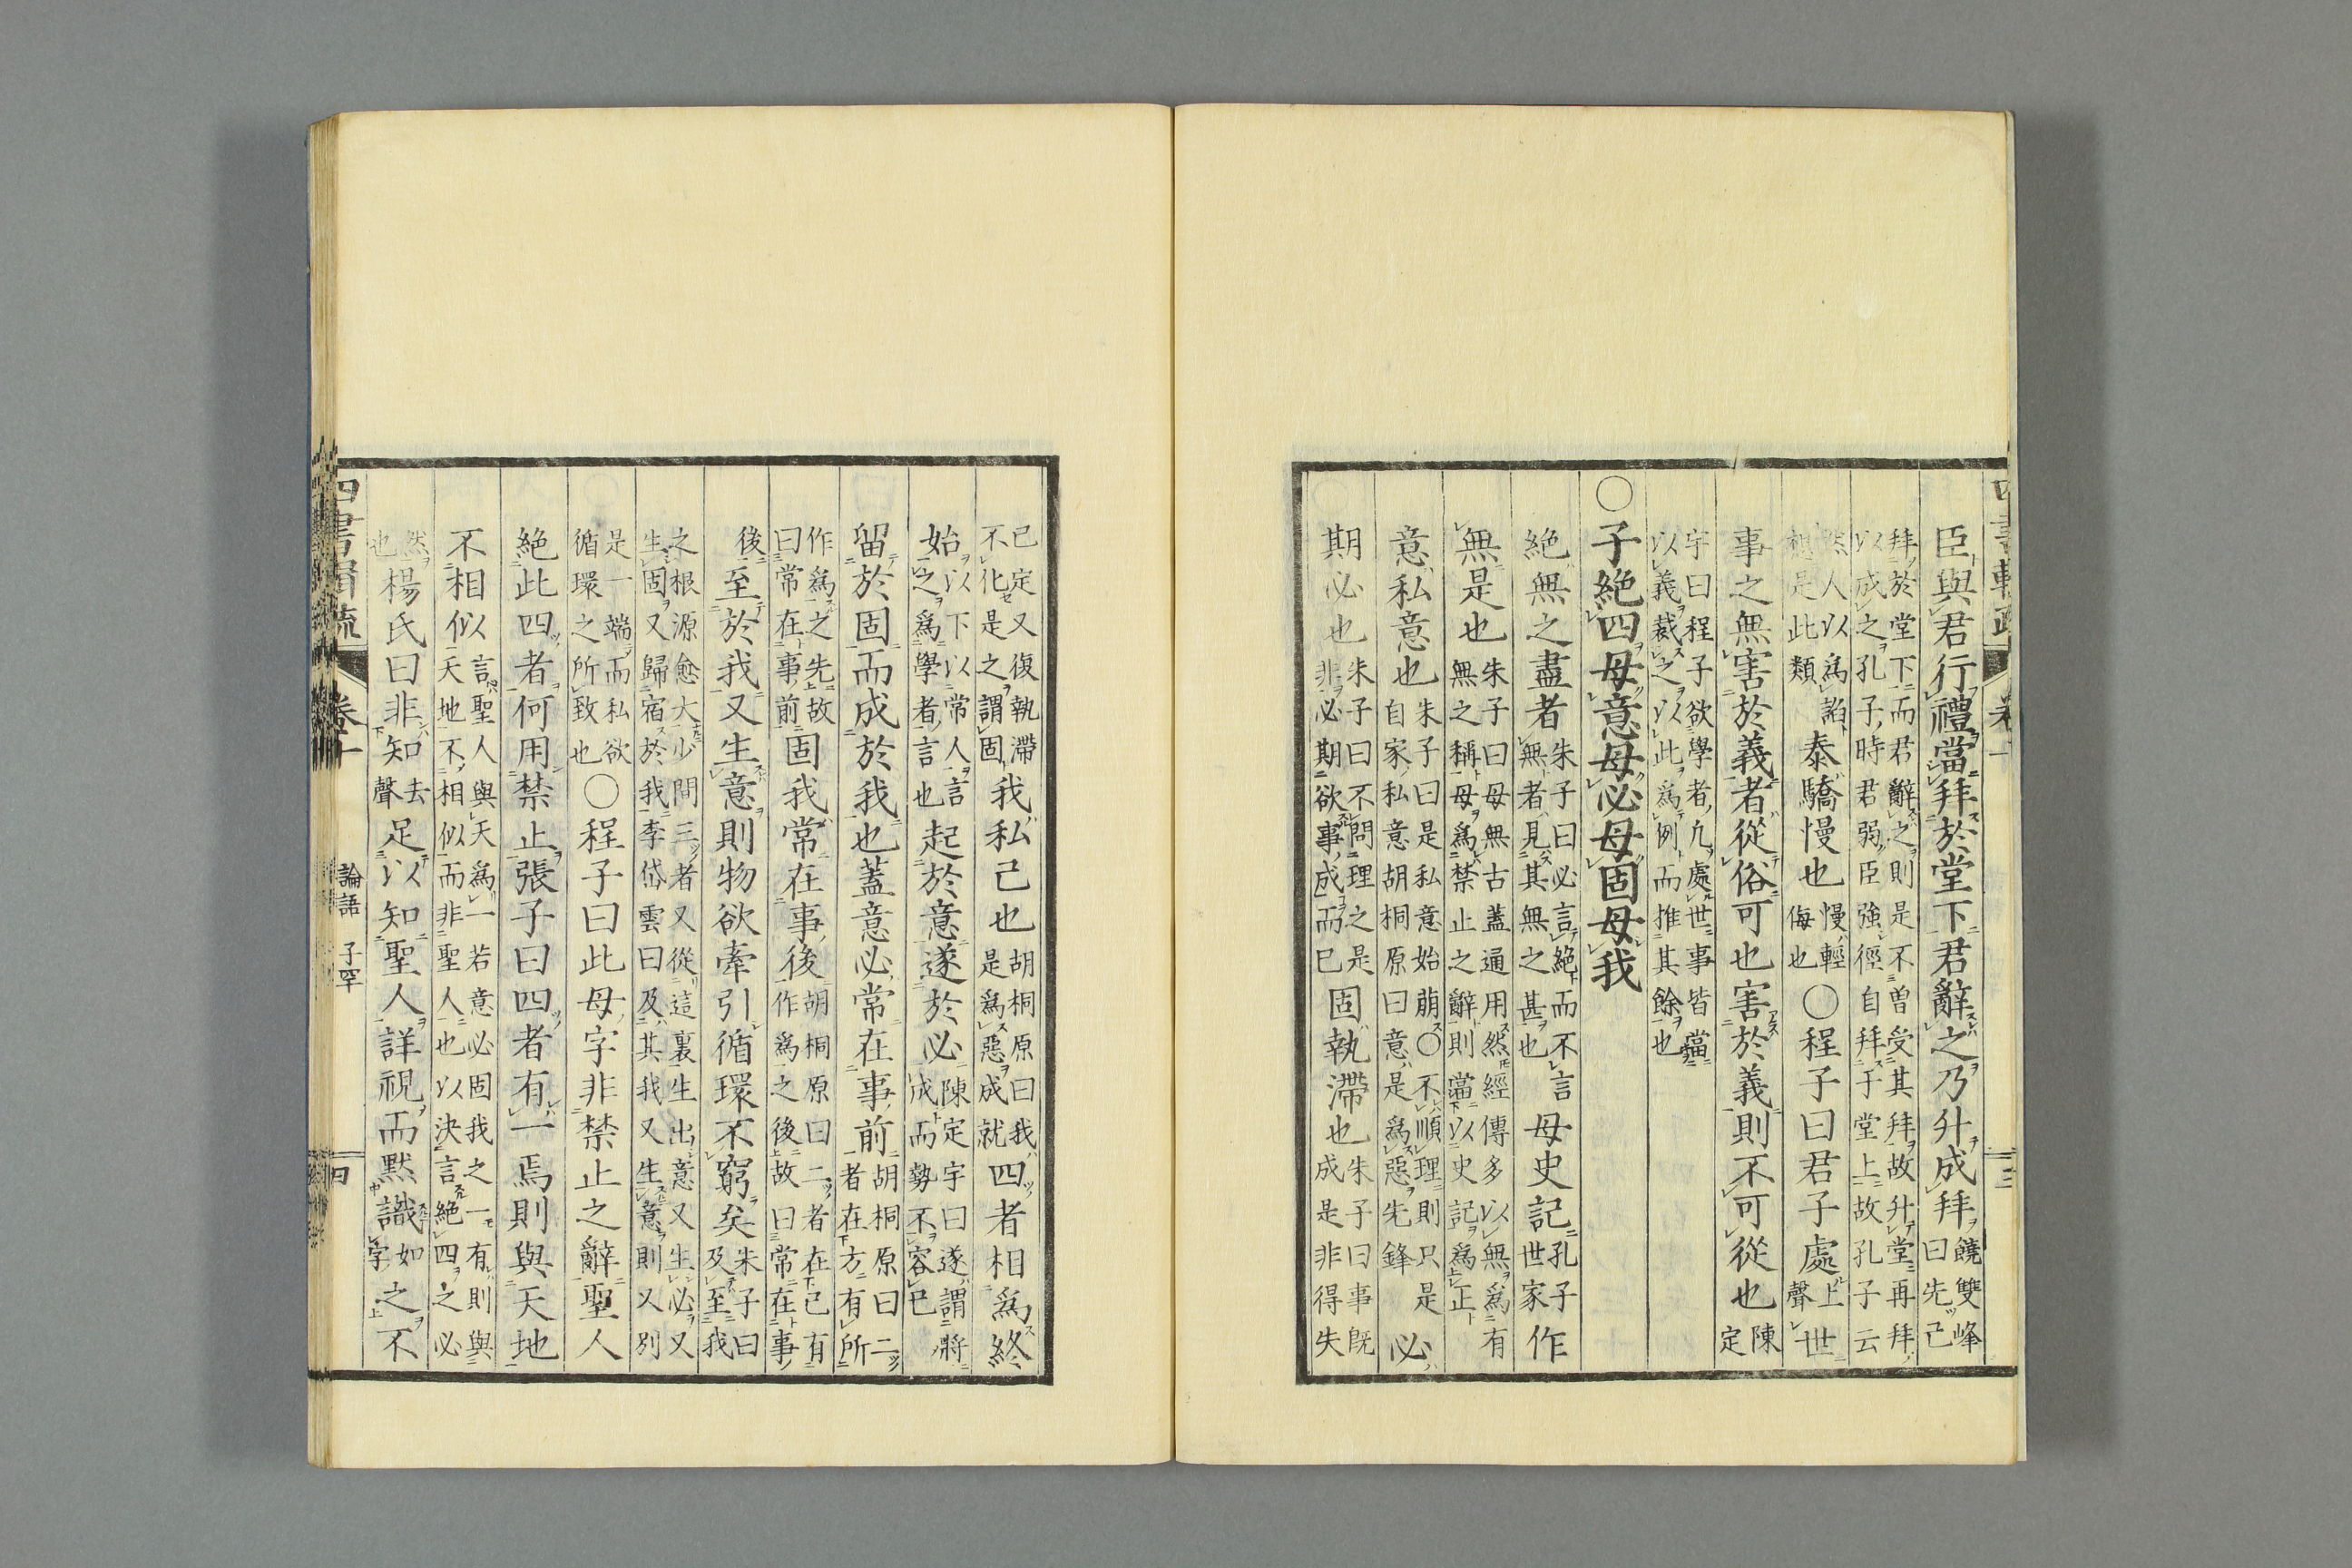 四書輯疏 卷十 三
臣與君行禮當拜於堂下君辭之乃升成拜饒雙峰曰先己
拜於堂下而君辭之則是不曽受其拜故升堂再拜
以成之孔子時君弱臣強徑自拜于堂上故孔子云
然人以爲諂想是此類泰驕慢也慢輕侮也○程子曰君子處上聲世
事之無害於義者從俗可也害於義則不可從也陳定
宇曰程子欲學者凢處世事皆當
以義裁之以此爲例而推其餘也
○子絶四毋意毋必毋固毋我
絶無之盡者朱子曰必言絶而不言無者見其無之甚也毋史記孔子世家作
無是也朱子曰毋無古蓋通用然經傳多以無爲有無之稱毋爲禁止之辭則當以史記爲正
意私意也朱子曰是私意始萠○不順理則只是自家私意胡桐原曰意是爲惡先鋒必
期必也朱子曰不問理之是非必期欲事成而已固執滯也朱子曰事既成是非得失
已定又復執滯不化是之謂固我私己也胡桐原曰我是爲惡成就四者相爲終
始以下以常人言之爲學者言也起於意遂於必陳定宇曰遂謂將成而勢不容已
留於固而成於我也蓋意必常在事前胡桐原曰二者在方有所
作爲之先故曰常在事前固我常在事後胡桐原曰二者在已有作爲之後故曰常在事
後至於我又生意則物欲牽引循環不窮矣朱子曰及至我
之根源愈大少間三者又從這裏生出意又生必又
生固又歸宿於我李岱雲曰及其我又生意則又別
是一端而私欲循環之所致也○程子曰此毋字非禁止之辭聖人
絶此四者何用禁止張子曰四者有一焉則與天地
不相似言聖人與天爲一若意必固我之一有則與天地不相似而非聖人也以決言絶四之必
然也楊氏曰非知去聲足以知聖人詳視而默識如字之不
四書輯疏 卷十 論語 子罕 四